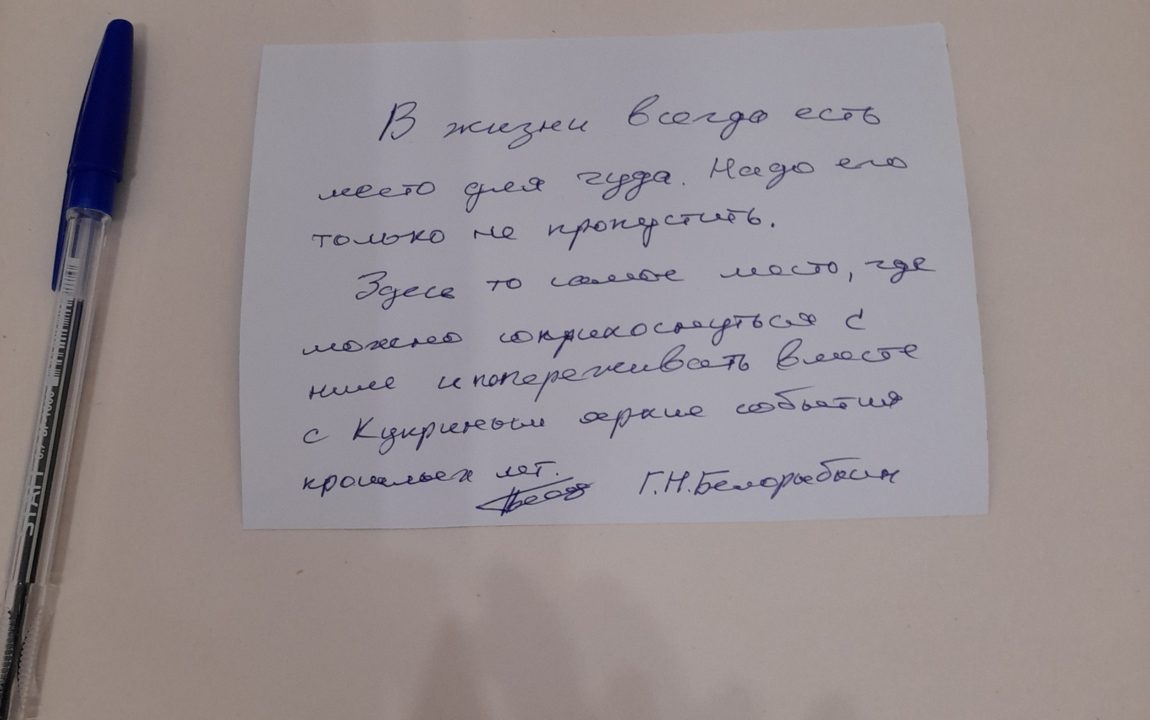 В жизни всегда есть
место для чуда. Надо его
только не пропустить.
Здесь то самое место, где
можно соприкоснуться с
ним и попереживать вместе
с Куприным яркие события
прошлых лет.
Г.Н.Белорыбкин